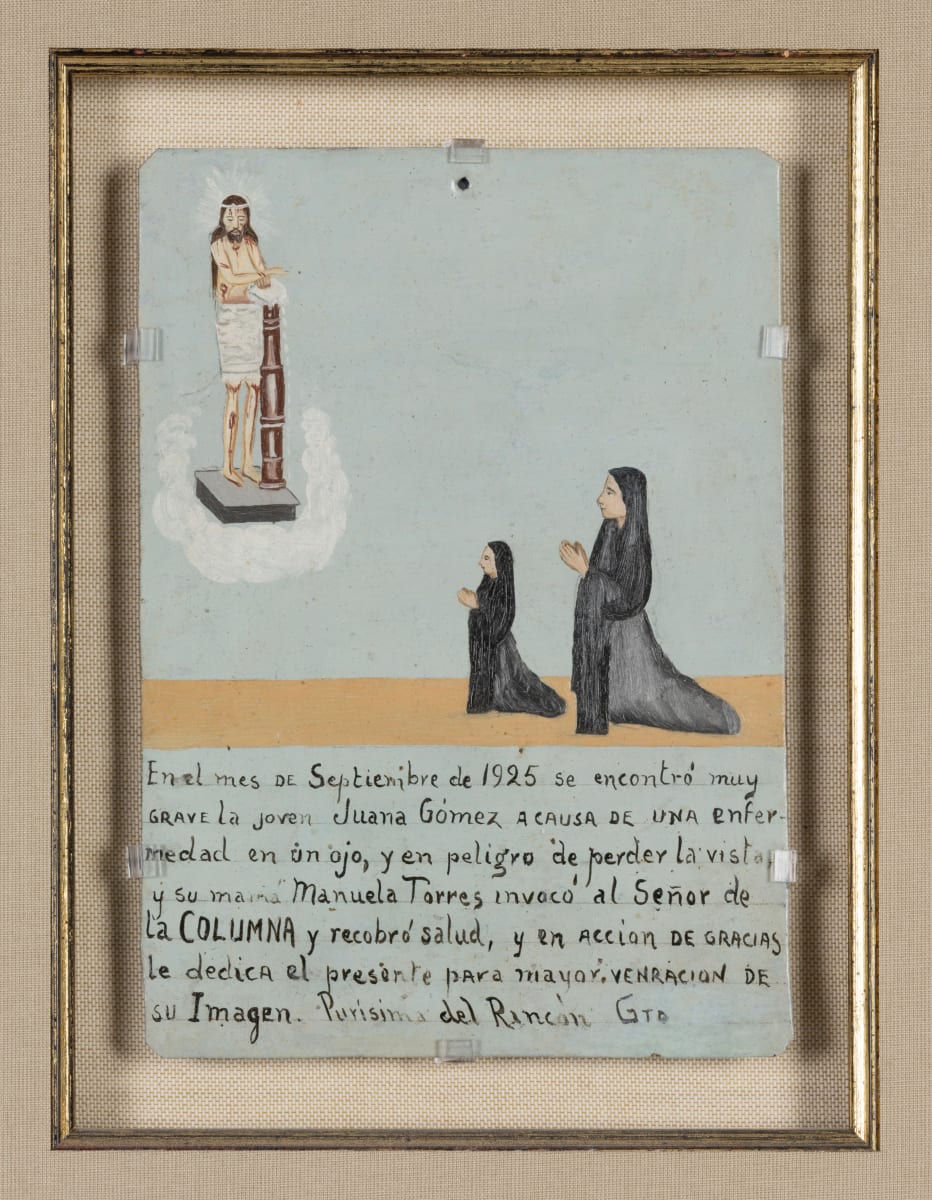 En el mes DE Septiembre de 1925 se encontró muy
GRAVE la joven Juana Gómez A CAUSA DE UNA enfer-
medad en un ojo, y en peligro de perder la vista,
y su mamá Manuela Torres invocó al Señor de
la COLUMNA y recobró salud, y en ACCion DE GRACIAS
le dedicA el presente para mayor. VENRACION DE
su Imagen. Purisima del Rincón GTO